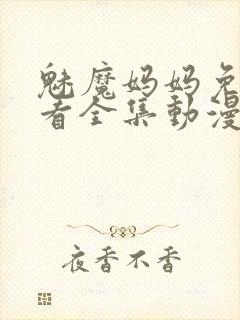 魅魔妈妈免
看全集動漫
夜香不香